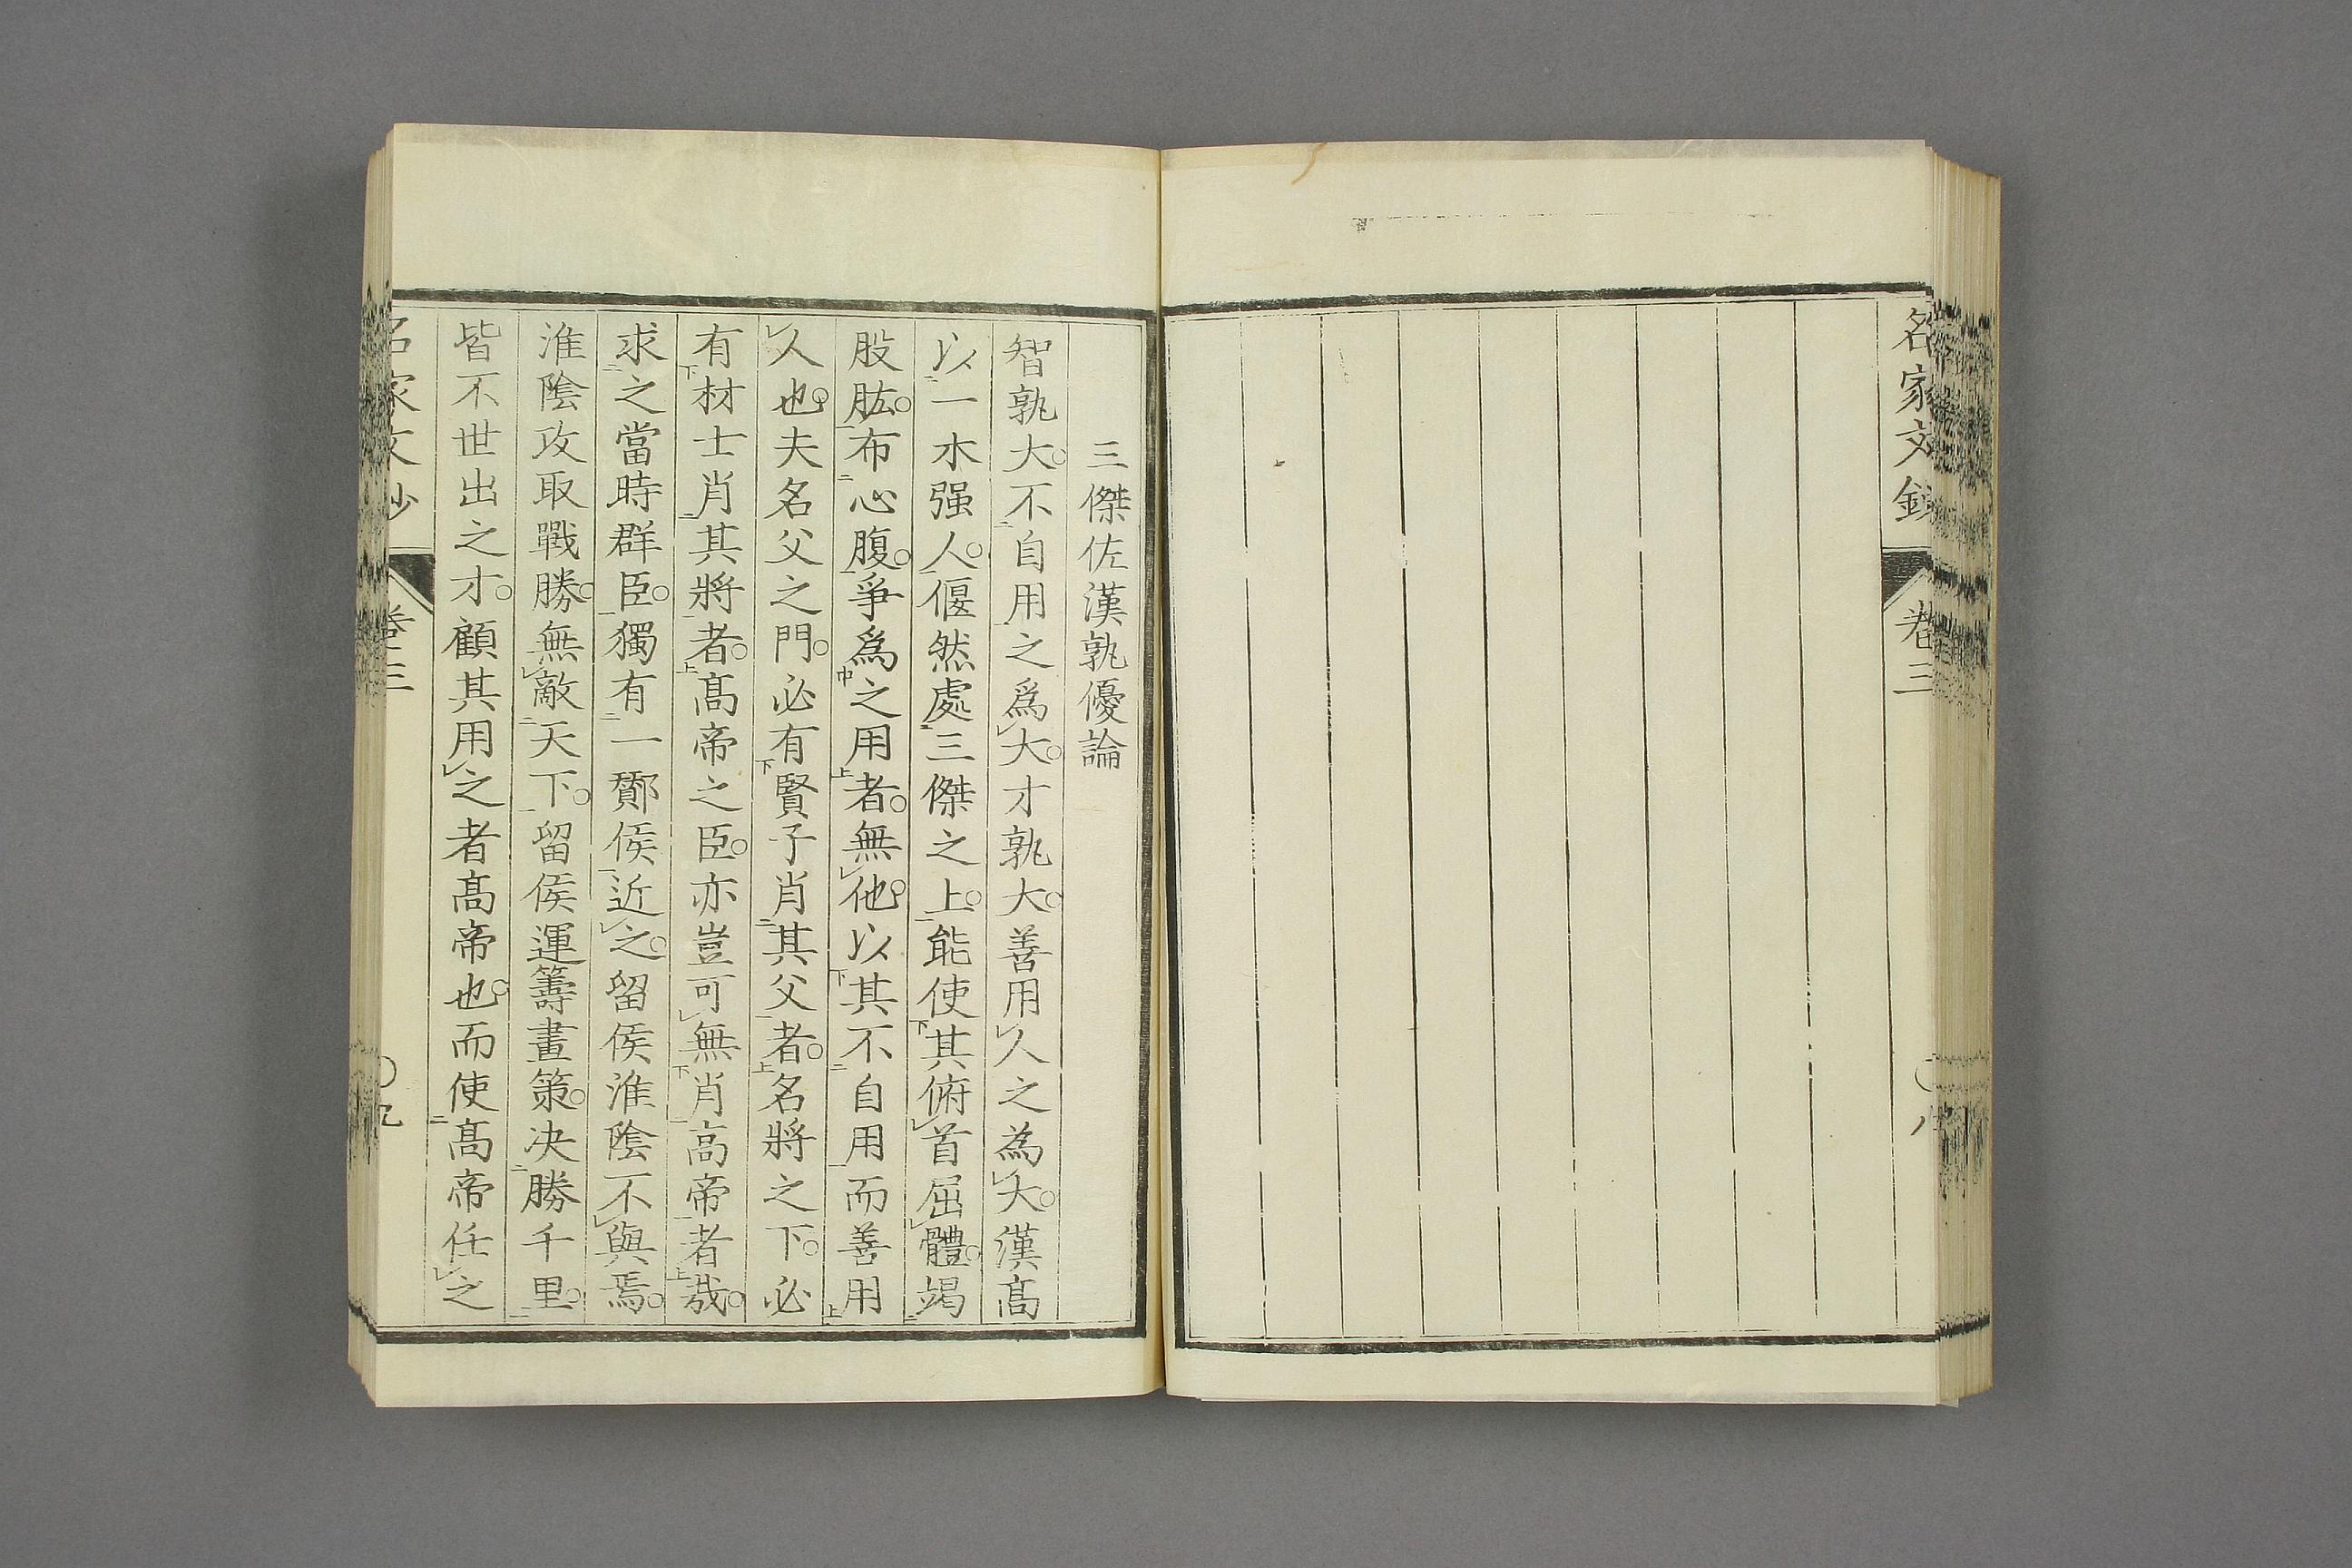 名家文鈔
卷三
〇八
三傑佐漢孰優論
智孰大不自用之爲大才孰大善用人之為大漢髙
以一木强人偃然處三傑之上能使其俯首屈體竭
股肱布心腹爭爲之用者無他以其不自用而善用
人也夫名父之門必有賢子肖其父者名將之下必
有材士肖其將者髙帝之臣亦豈可無肖高帝者哉
求之當時群臣獨有一酇侯近之留侯淮陰不與焉
淮陰攻取戰勝無敵天下留侯運籌畫策决勝千里
皆不世出之才顧其用之者髙帝也而使髙帝任之
名家文鈔
卷三
〇九